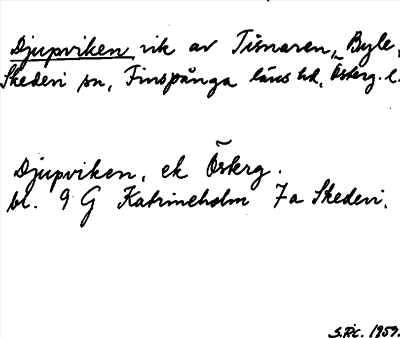 Djupviken, vik av Tisnaren, Byle,
Skedevi sn, Finspånga läns hd, Österg. l.
Djupviken, ek Österg.
bl. 9 G Katrineholm 7a Skedevi.
1959.